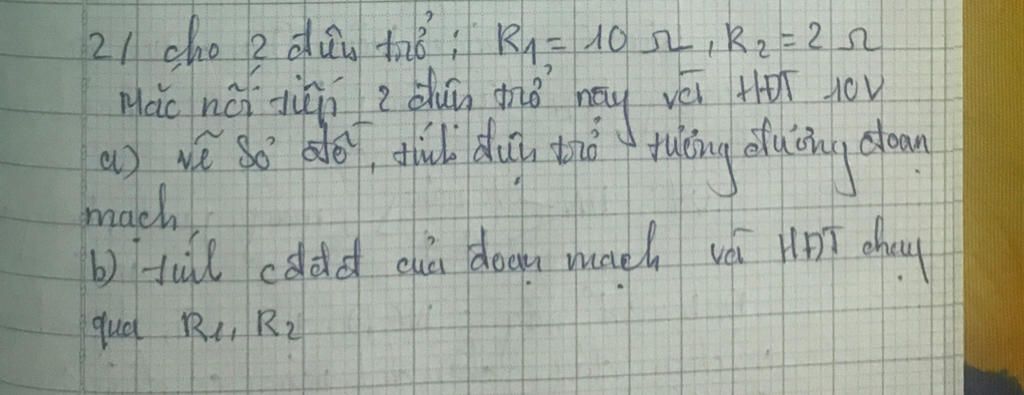 2/ cho 2 điện trở : R1 = 10 Ω, R2 = 2 Ω
Mắc nối tiếp 2 điện trở này với HĐT 10V
a) vẽ Sơ đồ, tính điện trở tương đương đoạn
mạch
b) tính cđdđ của đoạn mạch và HĐT chạy
qua R1, R2